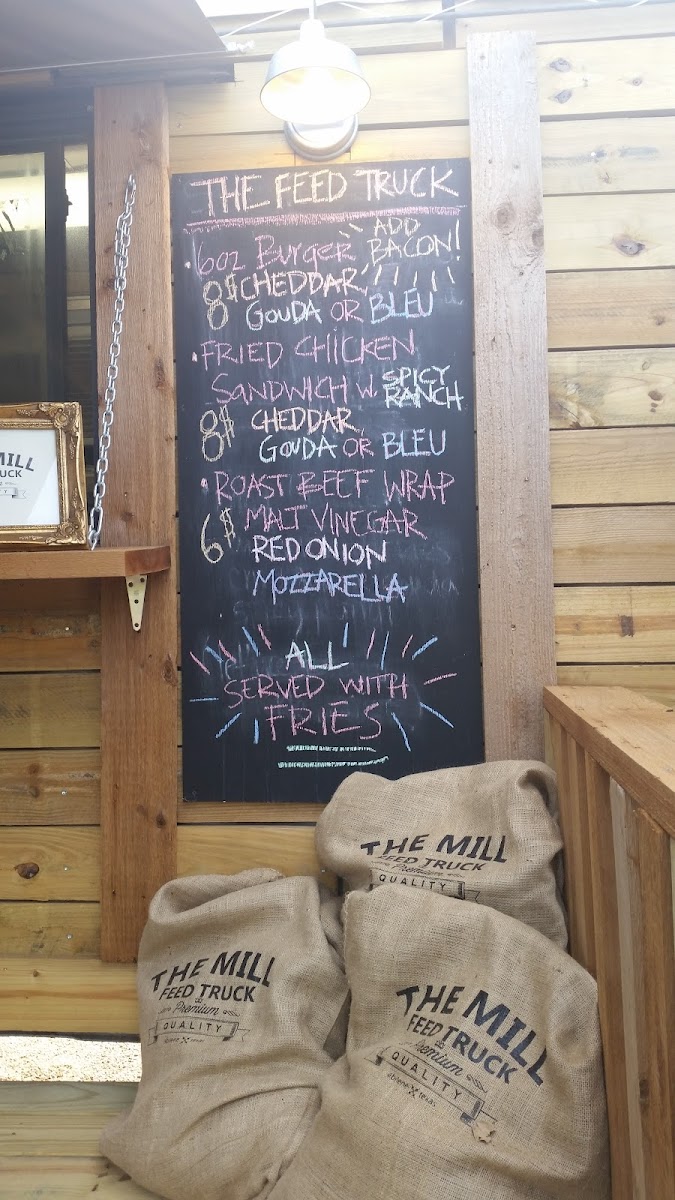 THE FEED TRUCK
6oz Burger ADD BACON!
8$ CHEDDAR,
GOUDA OR BLEU
FRIED CHICKEN
SANDWICH W. SPICY RANCH
8$ CHEDDAR,
GOUDA OR BLEU
ROAST BEEF WRAP
6$ MALT VINEGAR
RED ONION
MOZZARELLA
ALL
SERVED WITH
FRIES
MILL
UCK
THE MILL
FEED TRUCK
Premium
QUALITY
THE MILL
FEED TRUCK
Premium
QUALITY
abilene texas
THE MILL
FEED TRUCK
Premium
QUALITY
abilene texas